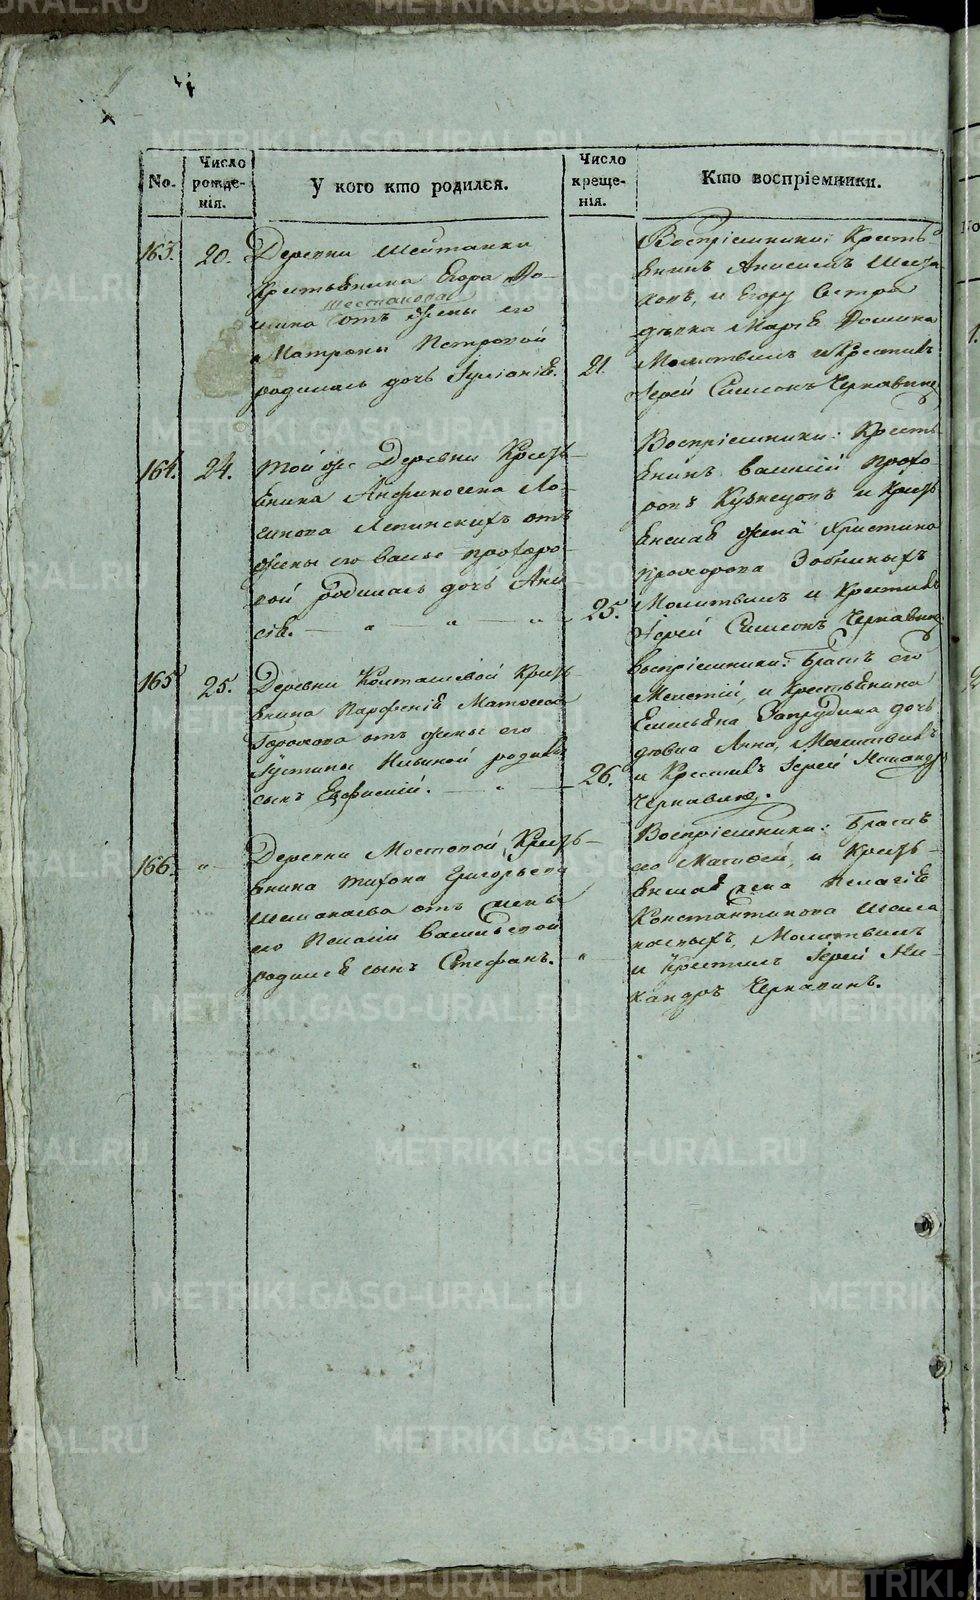 No.
Число рожде-
нія.
У кого кто родился.
Число креще-
нія.
Кто воспріемники.
163.
20.
Деревни Шейтанки
Крестьянина Егора До-
Шестакова
мина отъ жены его
Матроны Петровой
родилась дочь Іуліанія.
21.
Воспріемники: Кресть-
янинъ Анисимъ Шеста
ковъ, и Егору Сестра
дѣвка Марія Домина
Молитвилъ и Крестилъ
Іерей Симеонъ Чернавинъ
164.
24.
Той же Деревни Кресть-
янина
отъ
жены его Васьс Прохоро-
вой родилась дочь Ани
сія.
25.
Воспріемники: Кресть
янинъ Василій Прохо
ровъ Кузнецовъ и Кресть
янская жена Христина
Прохорова Зобниныхъ
Молитвилъ и Крестилъ
Іерей Симеонъ Чернавинъ
165
25.
Деревни Колташевой Кресть
янина Парфенія Матвеева
Горохова отъ жены его
Іустины Ильиной родился
сынъ Евфимій.
26.
Воспріемники: Братъ его
Мелетій, и Крестьянина
Емельяна Запрудина дочь
дѣвка Анна, Молитвилъ
и Крестилъ Іерей Никандръ
Чернавинъ.
166.
"
Деревни Мостовой Кресть-
янина Тихона Григорьева
Шеманаева отъ жены
его Пелагіи Васильевой
родился сынъ Стефанъ.
"
Воспріемники: Братъ
его Матфей, и Кресть-
янская жена Пелагія
Константинова Шема
наевыхъ, Молитвилъ
и Крестилъ Іерей Ни-
кандръ Чернавинъ.
METRIKI.GASO-URAL.RU